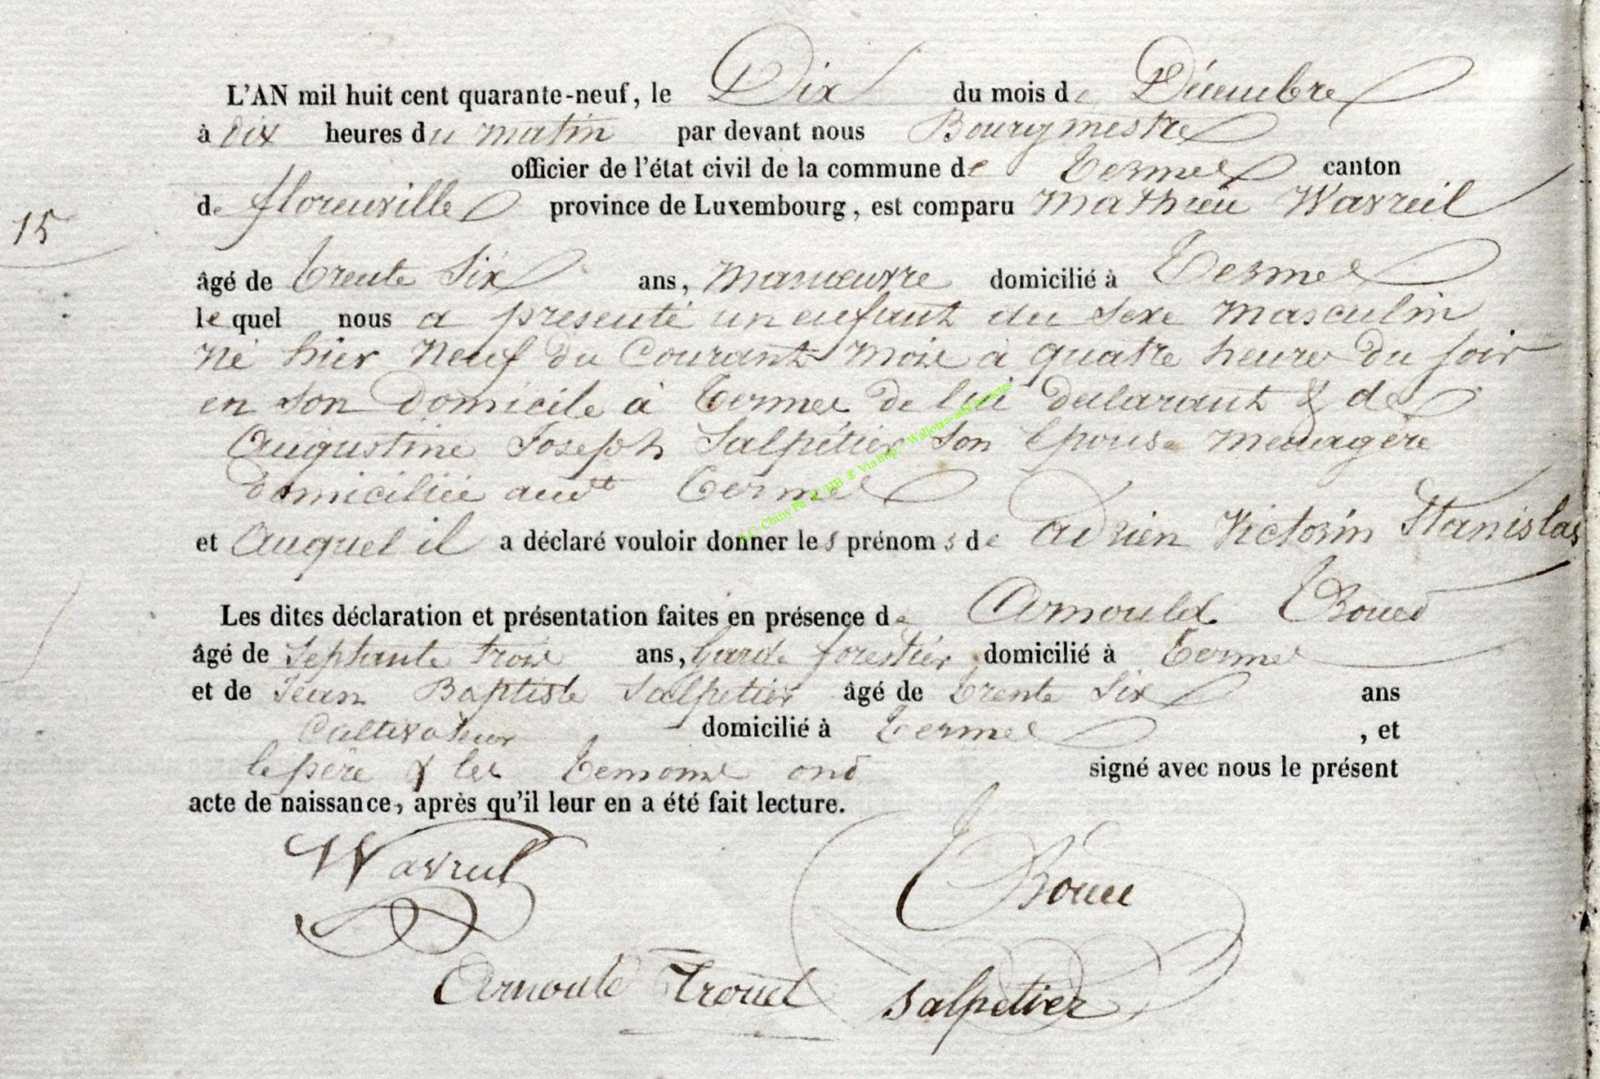 L'AN mil huit cent quarante-neuf, le Dix du mois de Décembre
à dix heures du matin par devant nous Bourgmestre
officier de l'état civil de la commune de Termes canton
de florenville province de Luxembourg, est comparu Mathieu Wavreil
15
âgé de trente six ans, manœuvre domicilié à Termes
le quel nous a présenté un enfant du sexe masculin
né hier neuf du Courant mois à quatre heures du soir
en son domicile à Termes de lui déclarant & de
Augustine Joseph Salpétier son épouse ménagère
domiciliée audt Termes
et Auquel il a déclaré vouloir donner les prénoms de Adrien Victorin Stanislas
Les dites déclaration et présentation faites en présence de Arnould
âgé de Septante trois ans, Garde forestier domicilié à Termes
et de Jean Baptiste Salpetier âgé de trente six ans
Cultivateur domicilié à Termes, et
le père & les témoins ont signé avec nous le présent
acte de naissance, après qu'il leur en a été fait lecture.
Wavreil
Arnould Salpetier